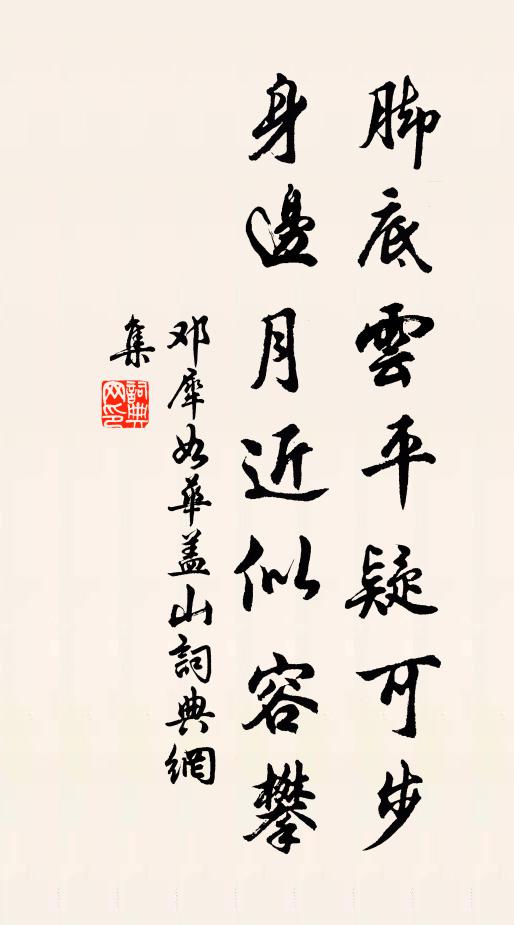 脚底雲平疑可步
身邊月近似容攀
邓犀如華盖山詞典網
集
詞典网印